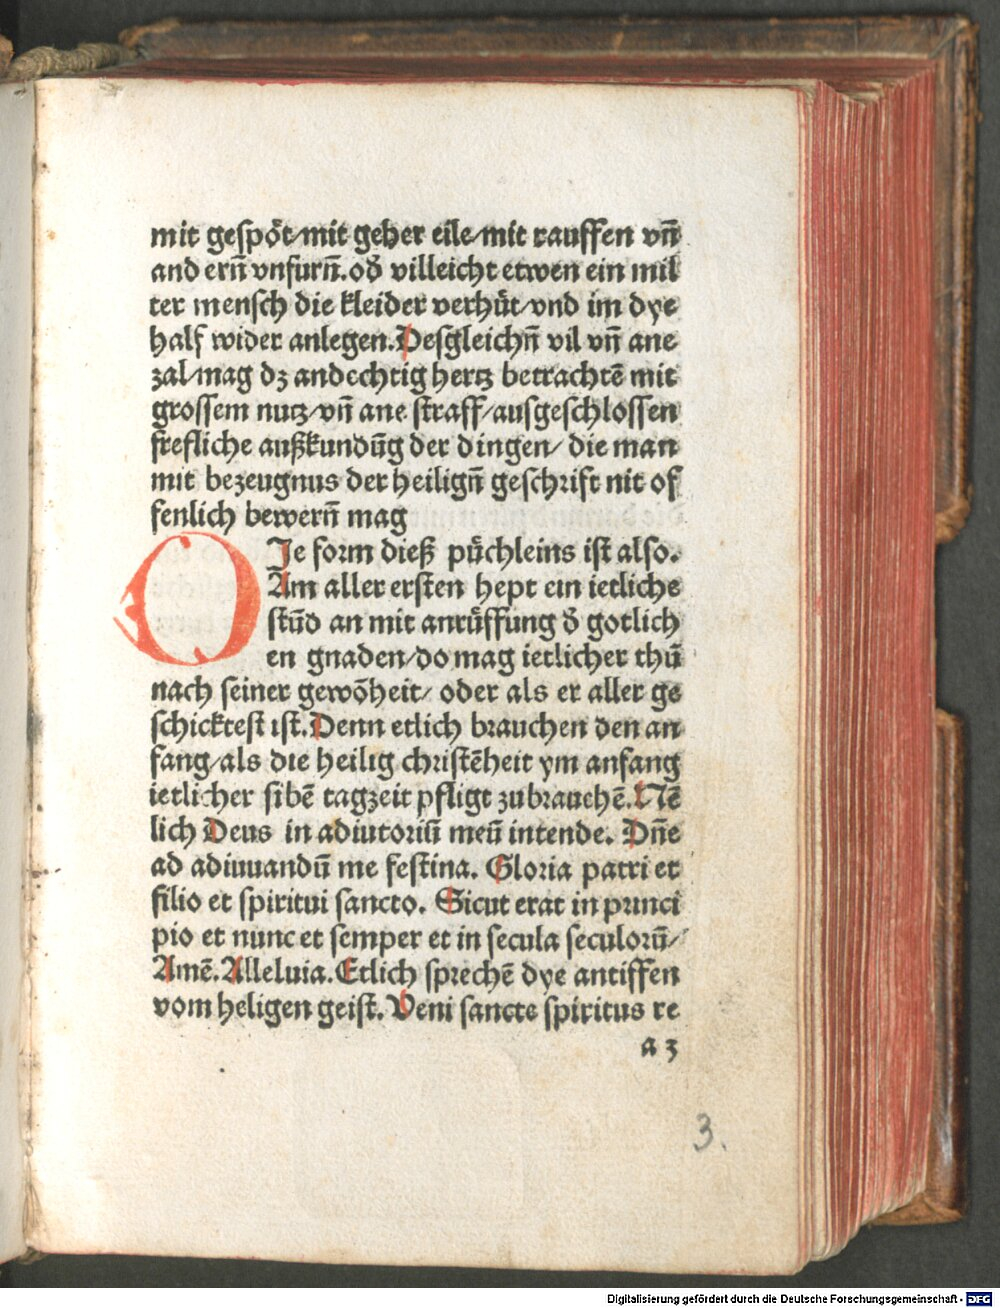 mit gespöt/mit geher eile/mit rauffen vn̄
and ern̄ vnfurn̄.od̕ villeicht etwen ein mil
ter mensch die kleider verhüt/vnd im dye
half wider anlegen.Desgleichn̄ vil vn̄ ane
zal/mag dz andechtig hertz betrachtē mit
grossem nutz/vn̄ ane straff/ausgeschlossen
frefliche außkundūg der dingen/ die man
mit bezeugnus der heilign̄ geschrift nit of
fenlich bewern̄ mag
OJe form dieß püchleins ist also.
Am aller ersten hept ein ietliche
stūd an mit anrüffung d̕ gotlich
en gnaden/do mag ietlicher thū
nach seiner gewōheit/ oder als er aller ge
schicktest ist.Denn etlich brauchen den an
fang/als die heilig christēheit ym anfang
ietlicher sibē tagzeit pfligt zubrauchē.Nē
lich Deus in adiutoriū meū intende. Dn̄e
ad adiuuandū me festina. Gloria patri et
filio et spiritui sancto. Sicut erat in princi
pio et nunc et semper et in secula seculorū/
Amē.Alleluia.Etlich sprechē dye antiffen
vom heligen geist.Veni sancte spiritus re
a 3
3.
Digitalisierung gefördert durch die Deutsche Forschungsgemeinschaft - DFG